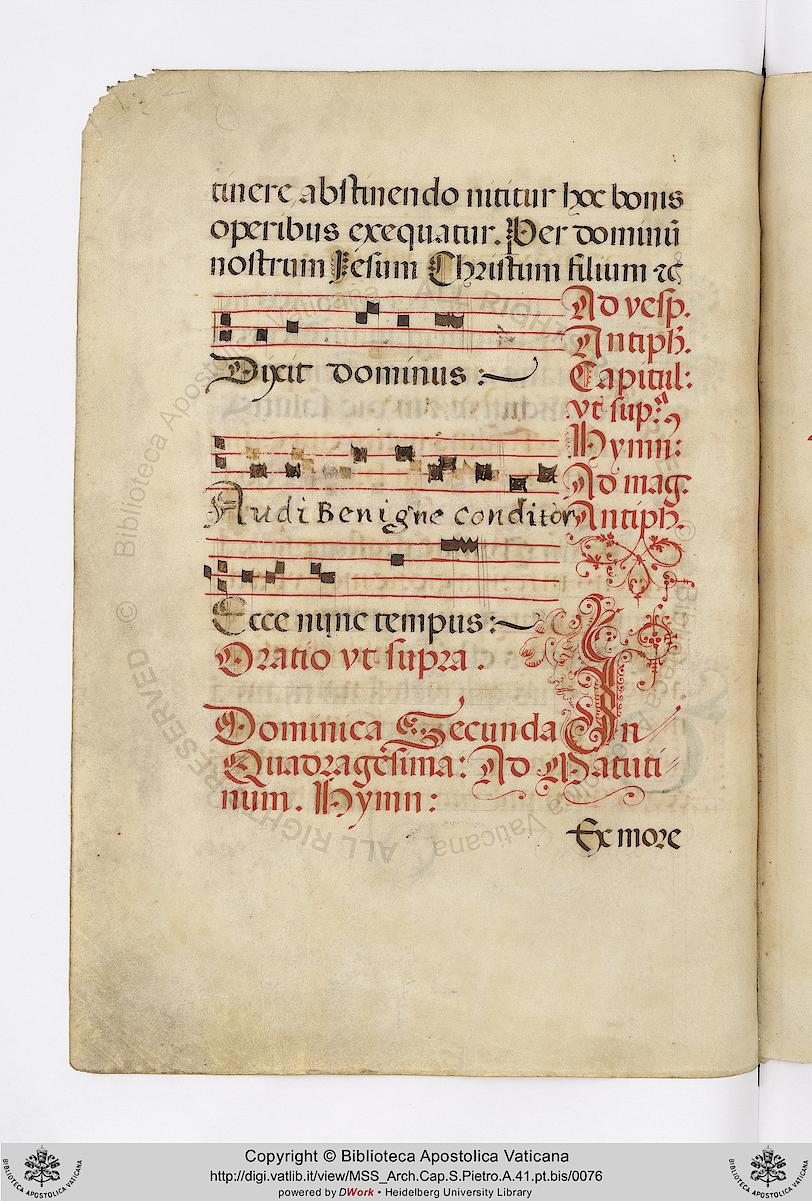 tinere abstinendo nititur hoc bonis
operibus exequatur. Per dominū
nostrum Iesum Christum filium ⁊c̄
Ad vesp.
Antiph.
Dixit dominus :~
Capitul:
vt sup:ª
Hymn:
Audi Benigne conditor
Ad mag.
Antiph.
Ecce nunc tempus :~
Oratio vt supra .
Dominica Secunda In
Quadragesima: Ad Matuti
num. Hymn:
Ex more
Copyright © Biblioteca Apostolica Vaticana
http://digi.vatlib.it/view/MSS_Arch.Cap.S.Pietro.A.41.pt.bis/0076
powered by DWork • Heidelberg University Library